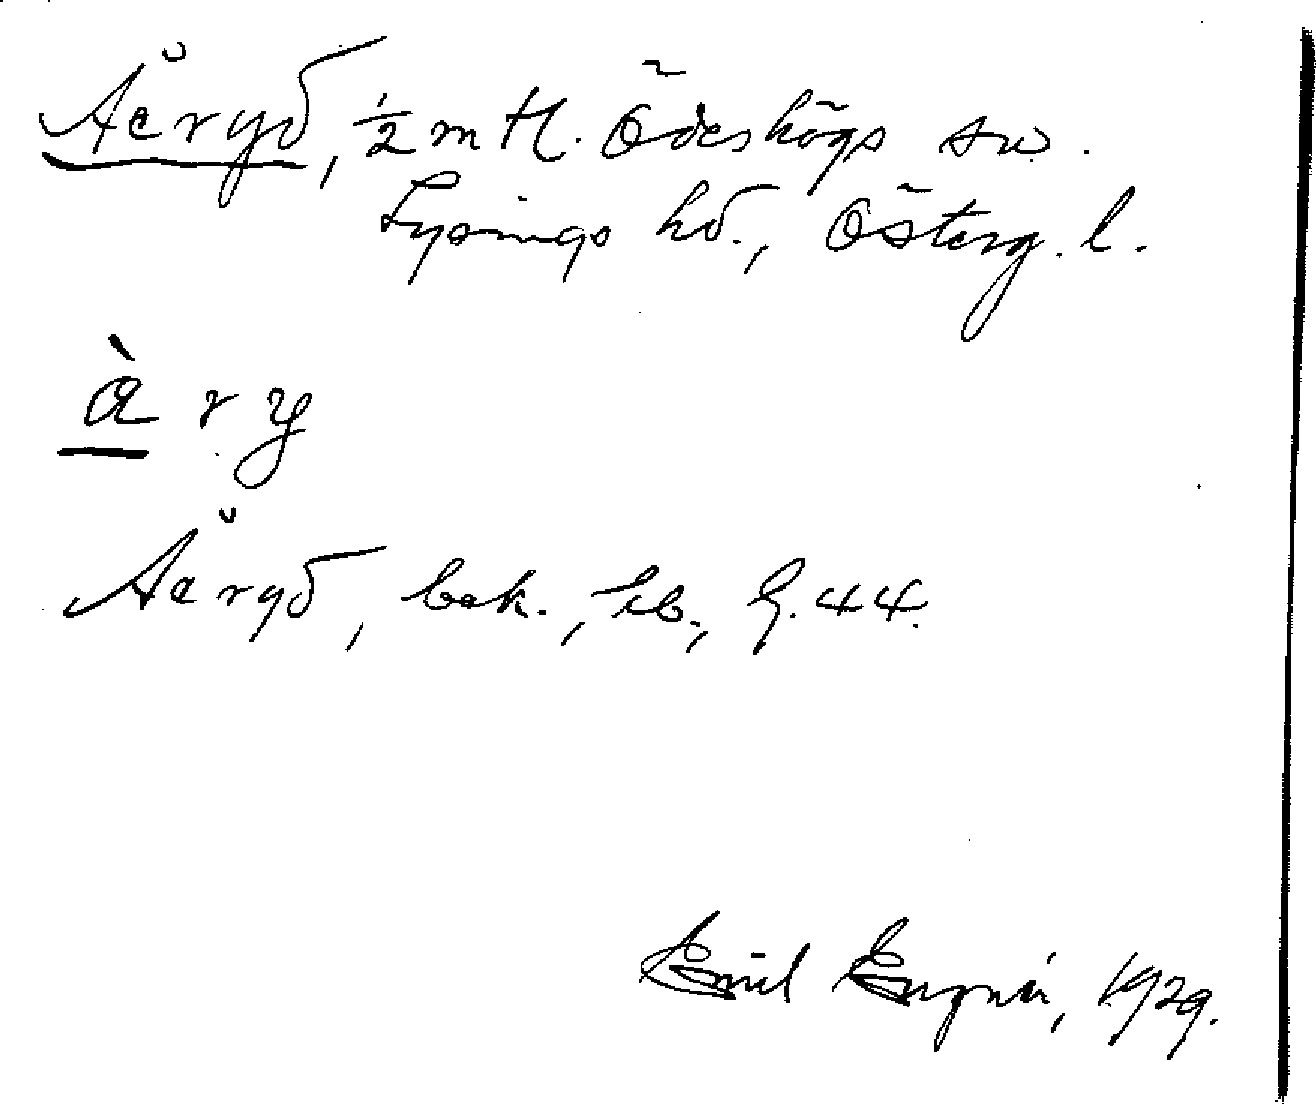 Åeryd, ½ mtl. Ödeshögs sn.
Lysings hd., Österg. l.
à r y
Åeryd, bek., jb., G. 44.
Emil 1929.